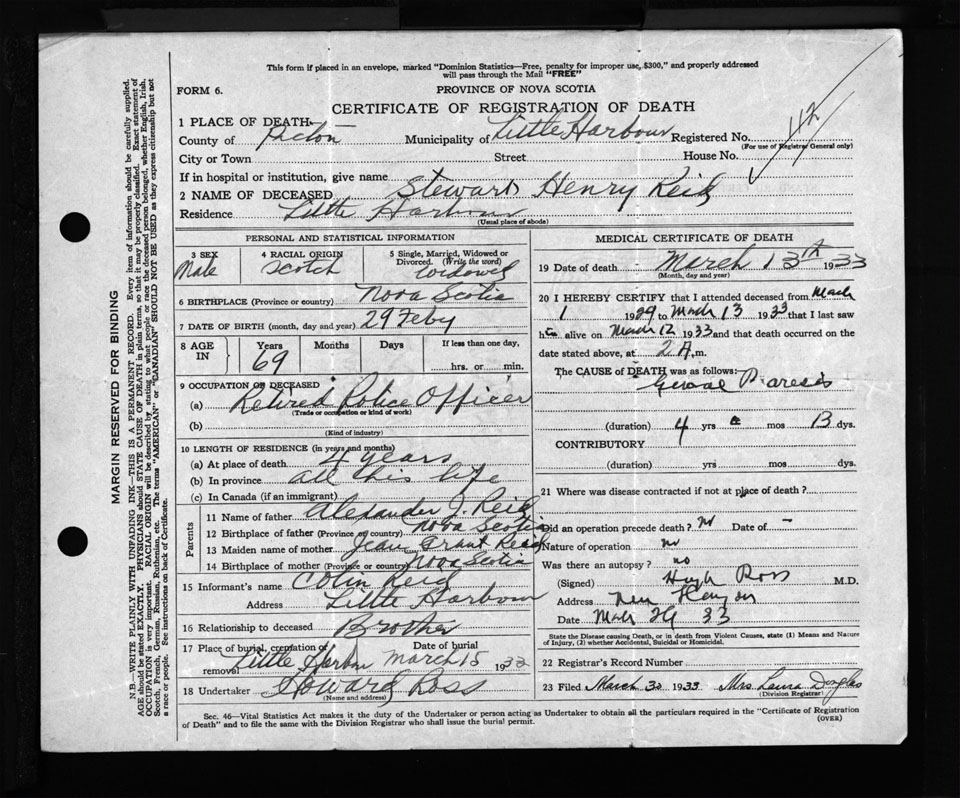 This form if placed in an envelope, marked "Dominion Statistics—Free, penalty for improper use, $300," and properly addressed
will pass through the Mail "FREE"
FORM 6.
PROVINCE OF NOVA SCOTIA
CERTIFICATE OF REGISTRATION OF DEATH
1 PLACE OF DEATH
County of Pictou Municipality of Little Harbour Registered No. 112
(For use of Registrar General only)
City or Town Street House No.
If in hospital or institution, give name
2 NAME OF DECEASED Stewart Henry Reid
Residence Little Harbour
(Usual place of abode)
PERSONAL AND STATISTICAL INFORMATION
3 SEX 4 RACIAL ORIGIN 5 Single, Married, Widowed or
Divorced. (Write the word)
Male Scotch Widowed
6 BIRTHPLACE (Province or country) Nova Scotia
7 DATE OF BIRTH (month, day and year) 29 Feby
8 AGE IN Years Months Days If less than one day,
69 hrs. or min.
9 OCCUPATION OF DECEASED
(a) Retired Police Officer
(Trade or occupation or kind of work)
(b)
(Kind of industry)
10 LENGTH OF RESIDENCE (in years and months)
(a) At place of death 4 years
(b) In province all his life
(c) In Canada (if an immigrant)
Parents
11 Name of father Alexander J. Reid
12 Birthplace of father (Province or country) Nova Scotia
13 Maiden name of mother Jean Grant Reid
14 Birthplace of mother (Province or country) Nova Scotia
15 Informant's name Colin Reid
Address Little Harbour
16 Relationship to deceased Brother
17 Place of burial, cremation or Date of burial
removal Little Harbour March 15 1933
18 Undertaker Howard Ross
(Name and address)
MEDICAL CERTIFICATE OF DEATH
19 Date of death March 13th 1933
(Month, day and year)
20 I HEREBY CERTIFY that I attended deceased from March
1 1929 to March 13 1933 that I last saw
him alive on March 12 1933 and that death occurred on the
date stated above, at 2 A. m.
The CAUSE of DEATH was as follows:
Paresis
(duration) 4 yrs mos 13 dys.
CONTRIBUTORY
(duration) yrs mos dys.
21 Where was disease contracted if not at place of death?
Did an operation precede death? no Date of -
Nature of operation no
Was there an autopsy? no
(Signed) Hugh Ross M.D.
Address New
Date 33
State the Disease causing Death, or in death from Violent Causes, state (1) Means and Nature
of Injury, (2) whether Accidental, Suicidal or Homicidal.
22 Registrar's Record Number
23 Filed March 30 1933 Mrs Laura Douglas
(Division Registrar)
Sec. 46—Vital Statistics Act makes it the duty of the Undertaker or person acting as Undertaker to obtain all the particulars required in the "Certificate of Registration
of Death" and to file the same with the Division Registrar who shall issue the burial permit. (OVER)
MARGIN RESERVED FOR BINDING
N.B.—WRITE PLAINLY WITH UNFADING INK—THIS IS A PERMANENT RECORD. Every item of information should be carefully supplied.
AGE should be stated EXACTLY. PHYSICIANS should STATE CAUSE OF DEATH in plain terms, so that it may be properly classified. Exact statement of
OCCUPATION is very important. RACIAL ORIGIN will be described by stating to what people or race the deceased person belonged, whether English, Irish,
Scotch, French, German, Russian, Ruthenian, etc. The terms "AMERICAN" or "CANADIAN" SHOULD NOT BE USED as they express citizenship but not
a race or people. See instructions on back of Certificate.